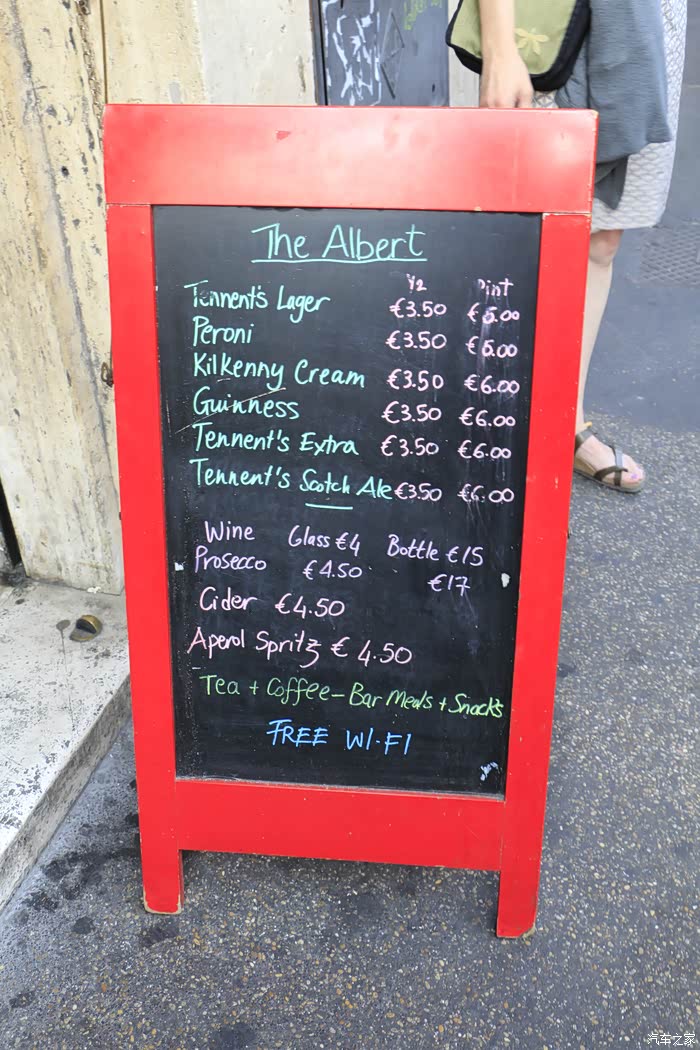 The Albert
1/2 Pint
Tennent's Lager €3.50 €5.00
Peroni €3.50 €6.00
Kilkenny Cream €3.50 €6.00
Guinness €3.50 €6.00
Tennent's Extra €3.50 €6.00
Tennent's Scotch Ale €3.50 €6.00
Wine Glass €4 Bottle €15
Prosecco €4.50 €17
Cider €4.50
Aperol Spritz €4.50
Tea + Coffee - Bar Meals + Snacks
FREE WI-FI
汽车之家